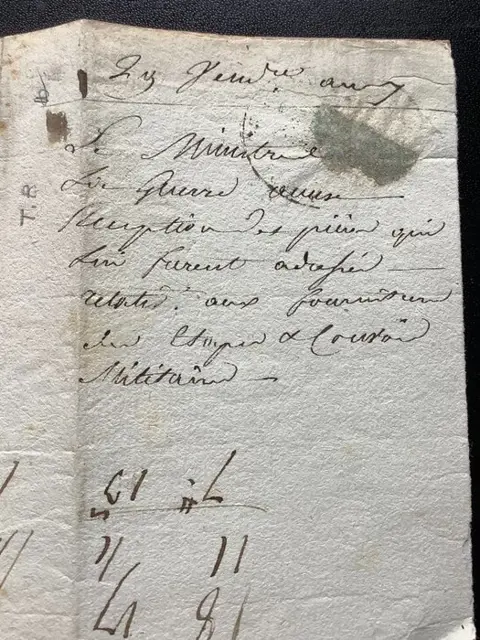 23 Vendre an 7
Le Ministre
De Guerre accuse
reception des pièces qui
lui furent adressées
relativ. aux fournitures
des Etapes & Convois
Militaires
T. P.
13 7
11 11
17 18